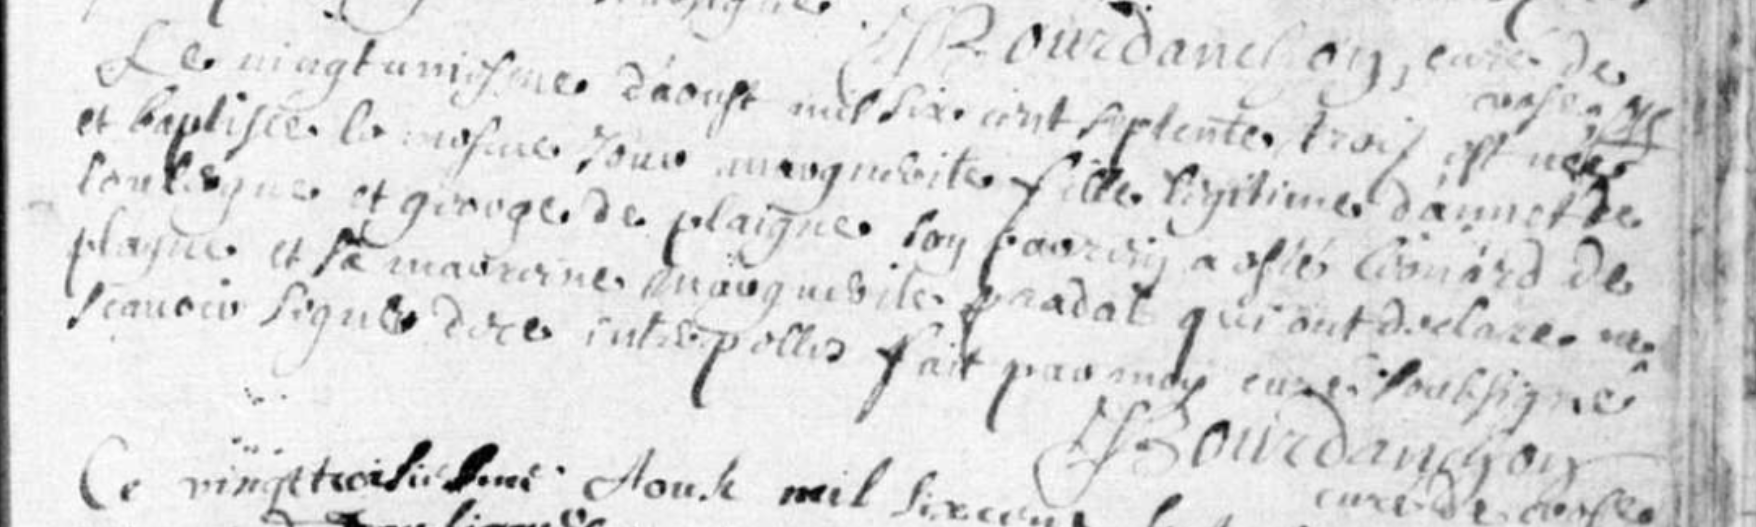 Bourdanchon, curé de
Le vingtuniesme d'aoust mil six cent septente trois est née
et baptisée le mesme jour marguerite fille legitime d'annet de
et george de plaigne son parrin a esté Léonard de
plagne et sa marrine marguerite pradat qui ont declaré ne
scavoir signer de ce interpellés fait par moy curé soubsigné
Bourdanchon
Ce vingttroisiesme Aoust mil six cent
curé de